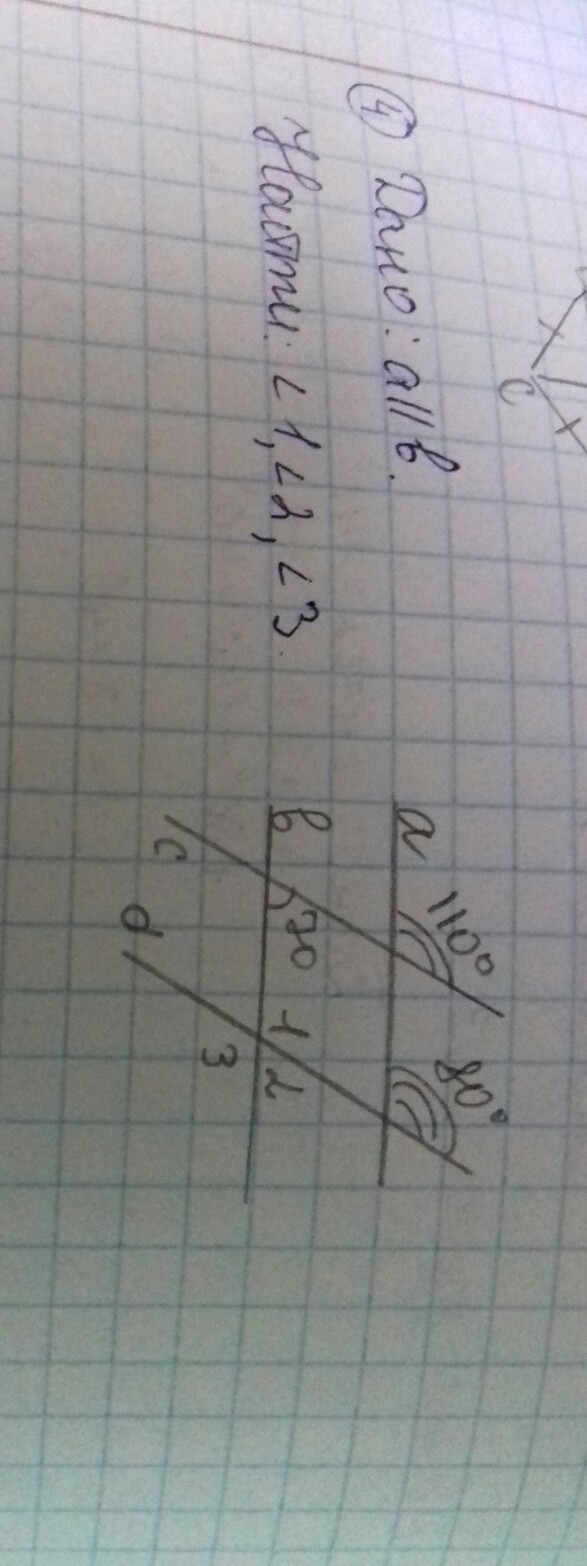 ④ Дано: a||b.
Найти: <1, <2, <3.
C
a 110° 80°
b 70 1 2
c 3
d